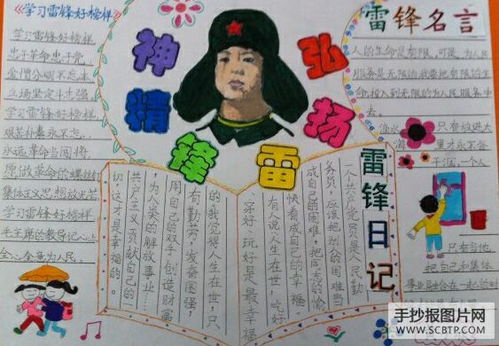 《学习雷锋好榜样》
学习雷锋好榜样
忠于革命忠于党
爱憎分明不忘本
立场坚定斗志强
学习雷锋好榜样
艰苦朴素永不忘
愿做革命的螺丝钉
集体主义思想放光芒
学习雷锋好榜样
毛主席的教导记心上
全心全意为人民
弘扬
雷锋
精神
雷锋名言
人的生命是有限,可是,为人民
服务是无限的,我要把有限的生
命,投入到无限的为人民服务中
去。
雷锋日记
一个共产党员是人民勤
务员,应该把别人的困难当
成自己的困难,把同志的愉
快看成自己的幸福。
有人说人生在世,吃好
穿好、玩好是最幸福
的我觉得人生在世,只
有勤劳,发奋图强,
用自己的双手创造财富
为人类的解放事业
共产主义贡献自己的一
切,这才是幸福的。
手抄报图片网
WWW.SCBTP.COM